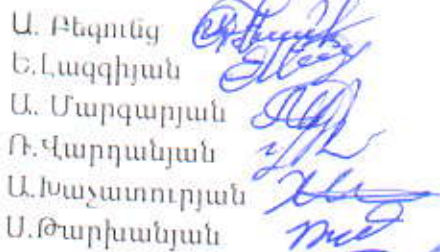 Ա. Բեգունց
Ե.Լազգիյան
Ա. Մարգարյան
Ռ.Վարդանյան
Ա.Խաչատուրյան
Ս.Թարխանյան